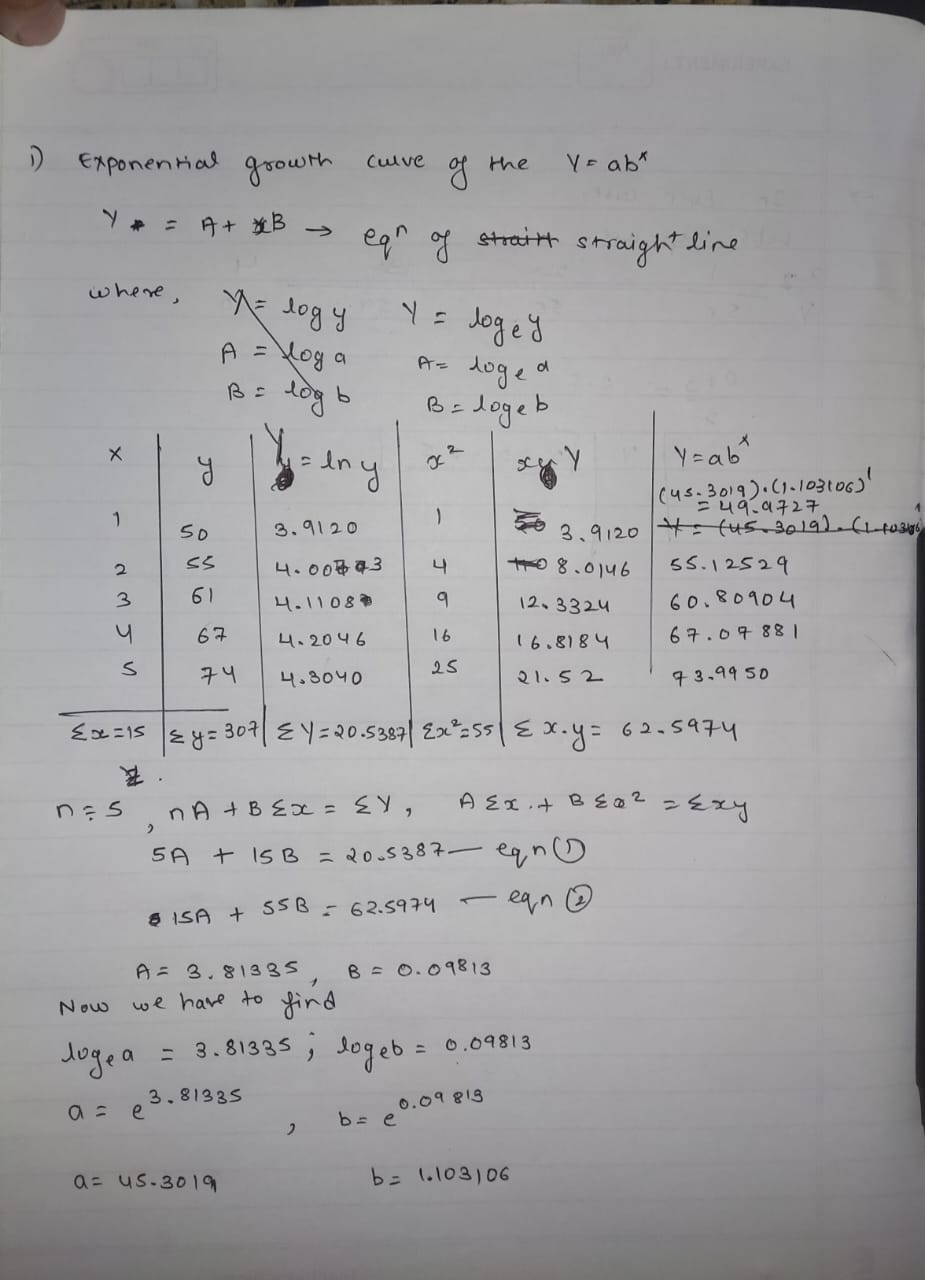 1) Exponential growth curve of the Y = ab^x
Y = A + xB → eqn of straight line
where, Y = log y Y = log_e y
A = log a A = log_e a
B = log b B = log_e b
x y Y = ln y x² xY Y = ab^x
1 50 3.9120 1 3.9120 (45.3019).(1.103106)^1 = 49.9727
Y = (45.3019).(1.103106)^1
2 55 4.0073 4 8.0146 55.12529
3 61 4.1108 9 12.3324 60.80904
4 67 4.2046 16 16.8184 67.07881
5 74 4.3040 25 21.52 73.9950
Σx=15 Σy=307 ΣY=20.5387 Σx²=55 Σx.y= 62.5974
n=5, nA + BΣx = ΣY, AΣx + BΣx² = Σxy
5A + 15B = 20.5387 — eqn ①
15A + 55B = 62.5974 — eqn ②
A = 3.81335, B = 0.09813
Now we have to find
log_e a = 3.81335 ; log_e b = 0.09813
a = e^3.81335 , b = e^0.09813
a = 45.3019 b = 1.103106